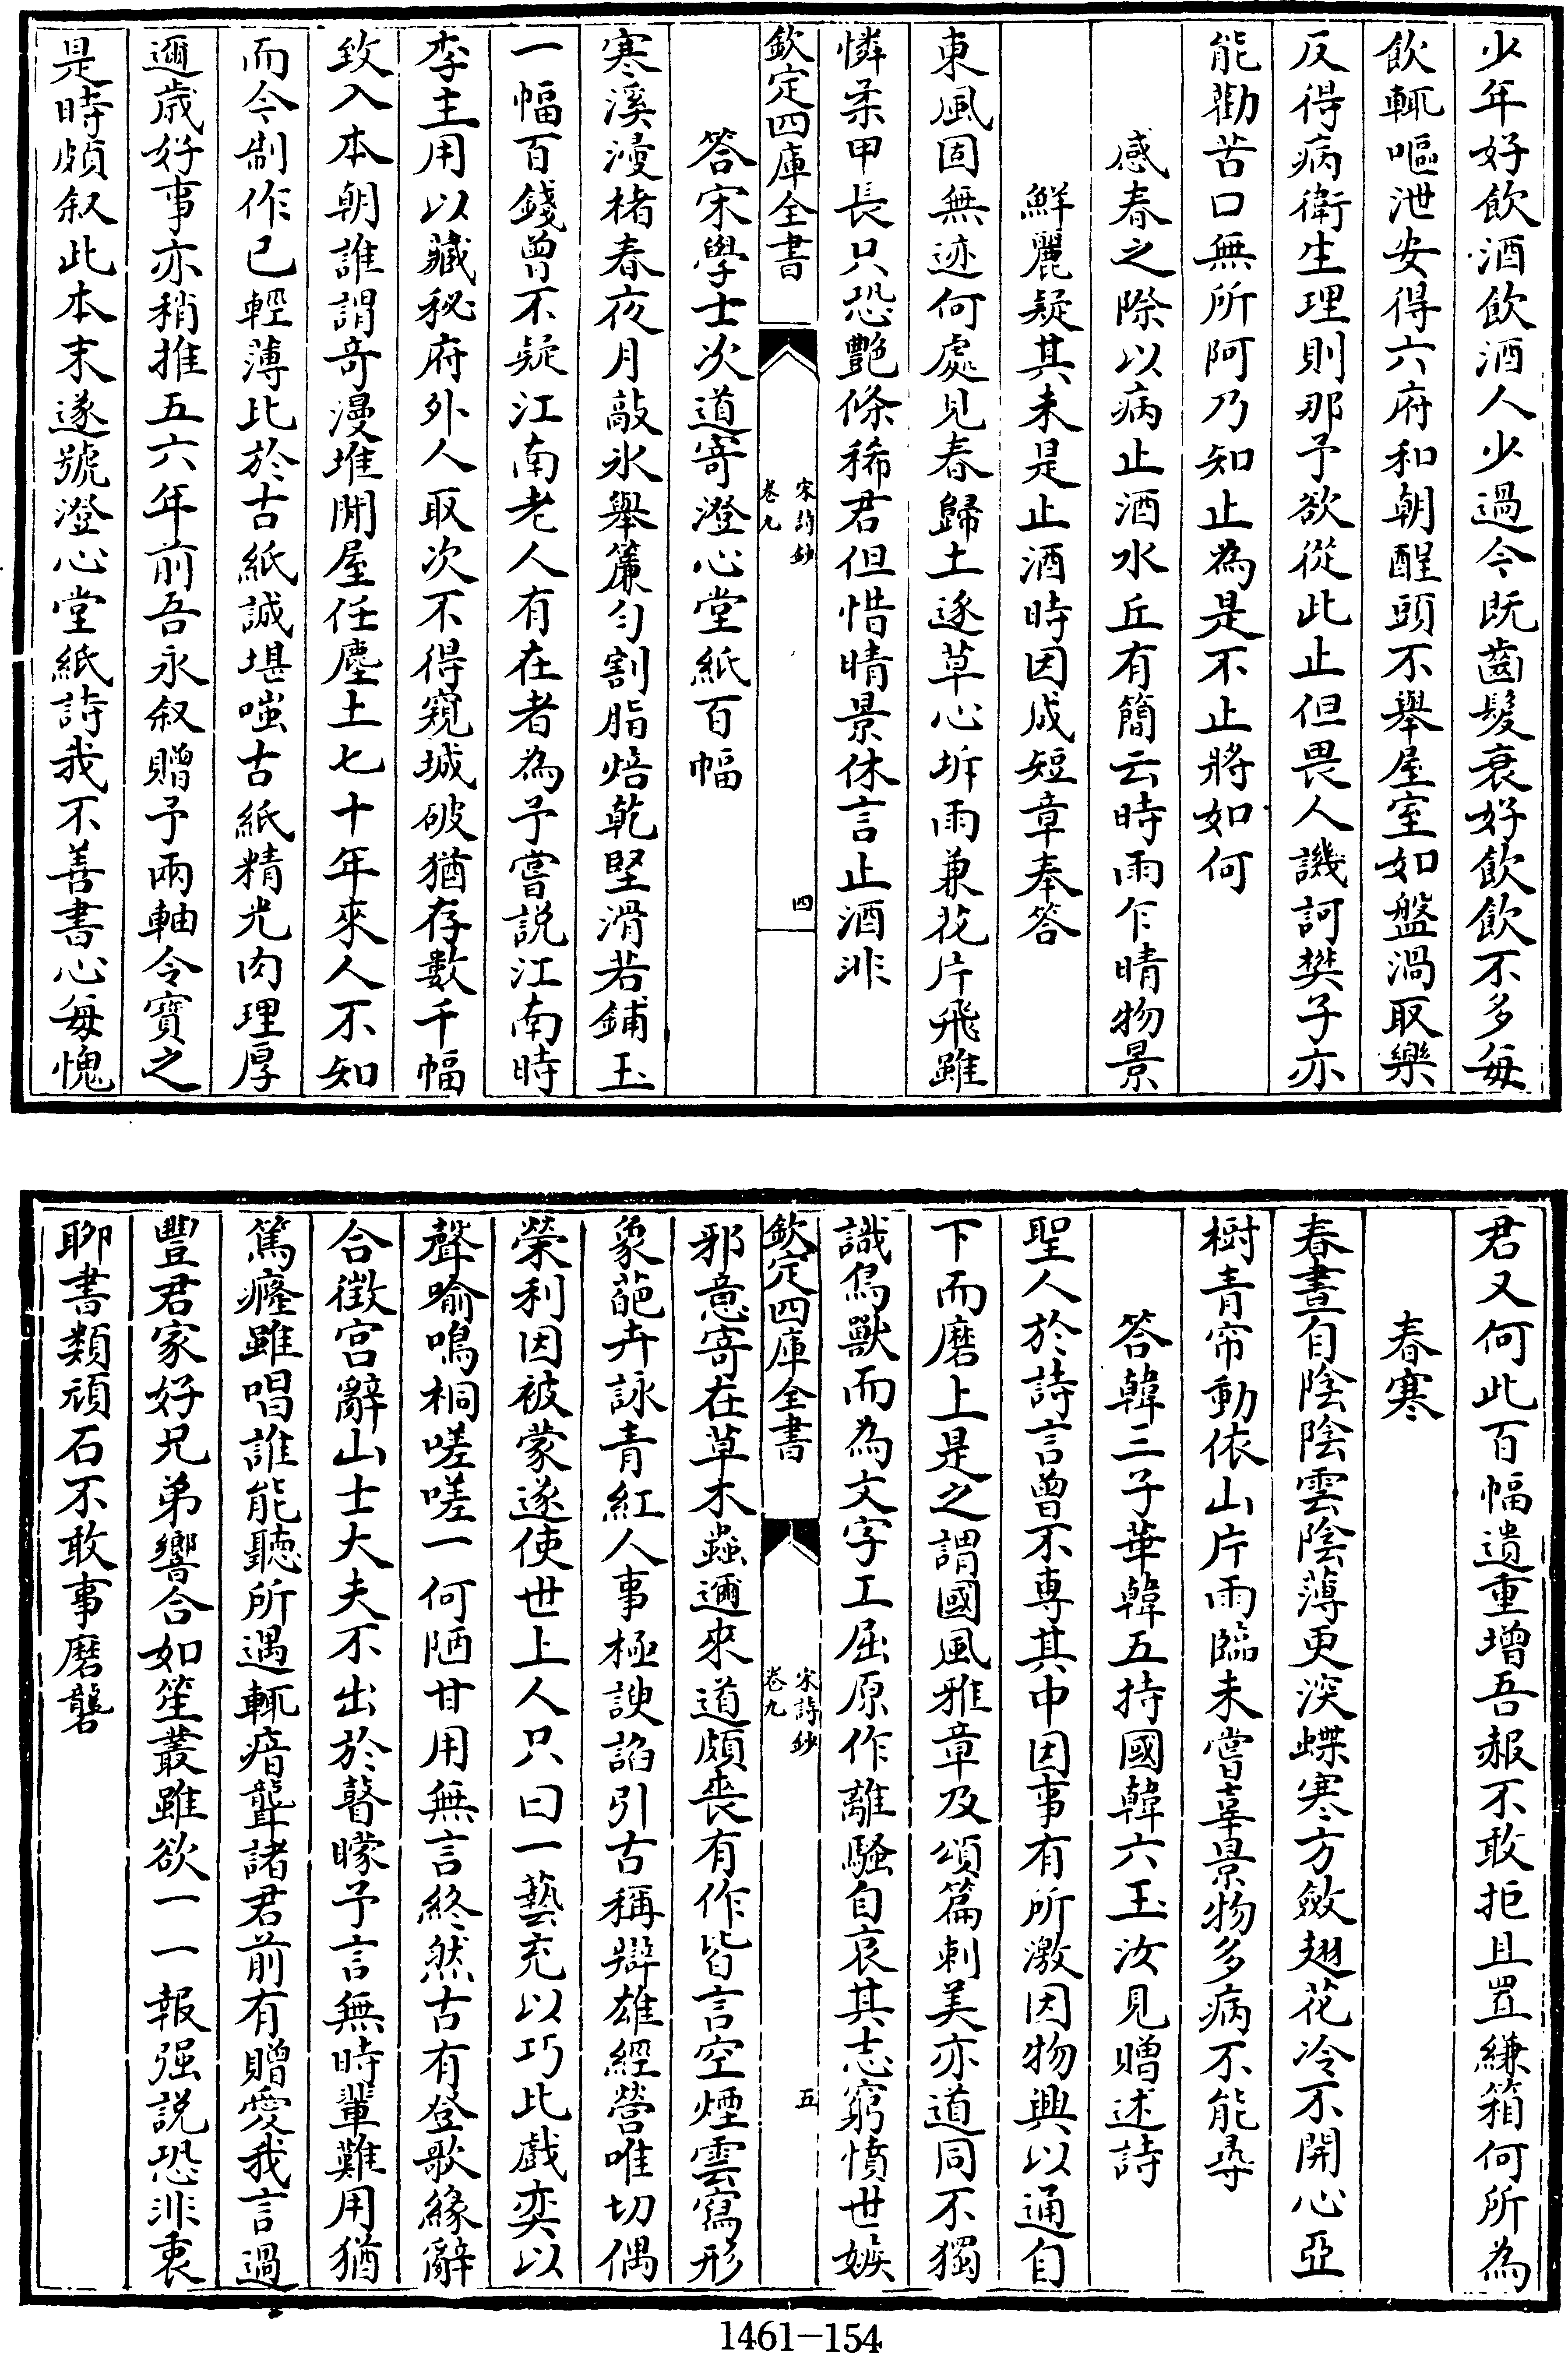 少年好飲酒飲酒人少過今既齒髮衰好飲飲不多每
飲輒嘔泄安得六府和朝醒頭不舉屋室如盤渦取樂
反得病衛生理則那予欲從此止但畏人譏訶樊子亦
能勸苦口無所阿乃知止為是不止將如何
感春之際以病止酒水丘有簡云時雨乍晴物景
鮮麗疑其未是止酒時因成短章奉答
東風固無迹何處見春歸土逐草心坼雨兼花片飛雖
憐柔甲長只恐艷條稀君但惜晴景休言止酒非
欽定四庫全書
宋詩鈔
卷九
四
答宋學士次道寄澄心堂紙百幅
寒溪浸楮春夜月敲氷舉簾匀割脂焙乾堅滑若鋪玉
一幅百錢曾不疑江南老人有在者為予嘗説江南時
李主用以藏秘府外人取次不得窺城破猶存數千幅
致入本朝誰謂奇漫堆閒屋任塵土七十年來人不知
而今制作已輕薄比於古紙誠堪嗤古紙精光肉理厚
邇歲好事亦稍推五六年前吾永叙贈予兩軸令寶之
是時頗叙此本末遂號澄心堂紙詩我不善書心每愧
君又何此百幅遺重增吾赧不敢拒且置縑箱何所為
春寒
春晝自陰陰雲陰薄更深蝶寒方斂翅花冷不開心亞
樹青帘動依山片雨臨未嘗辜景物多病不能尋
答韓三子華韓五持國韓六玉汝見贈述詩
聖人於詩言曾不專其中因事有所激因物興以通自
下而磨上是之謂國風雅章及頌篇刺美亦道同不獨
識鳥獸而為文字工屈原作離騷自哀其志窮憤世嫉
欽定四庫全書
宋詩鈔
卷九
五
邪意寄在草木蟲邇來道頗喪有作皆言空煙雲寫形
象葩卉詠青紅人事極諛諂引古稱辯雄經營唯切偶
榮利因被蒙遂使世上人只曰一藝充以巧比戲奕以
聲喻鳴桐嗟嗟一何陋甘用無言終然古有登歌緣辭
合徵宮辭山士大夫不出於瞽矇予言無時輩難用猶
篤癃雖唱誰能聽所遇輒瘖聾諸君前有贈愛我言過
豐君家好兄弟響合如笙叢雖欲一一報强説恐非衷
聊書類頑石不敢事磨礱
1461-154